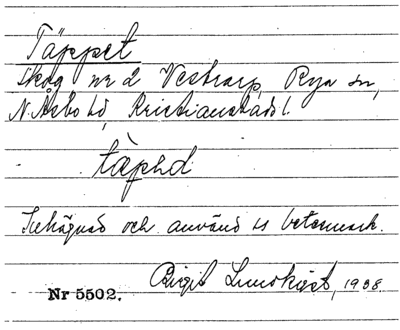 Täppet
Skog nr 2 Vestrarp, Rya sn,
N. Åsbo hd, Kristianstads l.
täphd
Inhägnad och använd ss betesmark.
Birgit Lundkvist, 1938
Nr 5502.